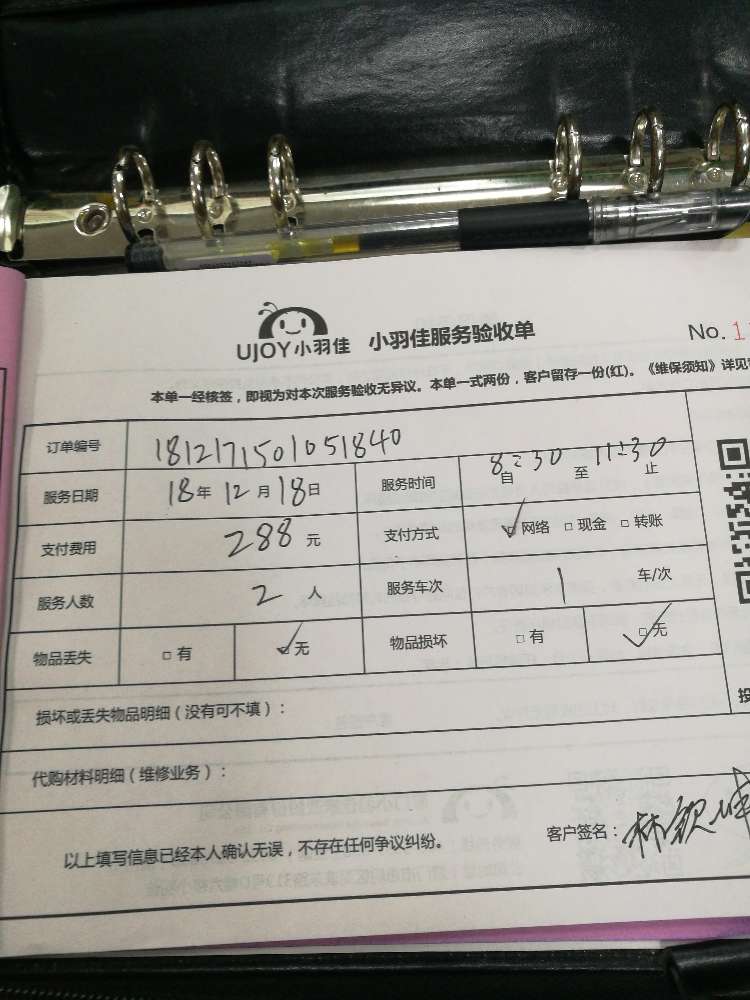 UJOY小羽佳 小羽佳服务验收单
No. 1
本单一经核签，即视为对本次服务验收无异议。本单一式两份，客户留存一份(红)。《维保须知》详见
订单编号 1812171501051840
服务日期 18年 12月 18日 服务时间 自 8:30 至 11:30 止
支付费用 288 元 支付方式 ✓□网络 □现金 □转账
服务人数 2 人 服务车次 1 车/次
物品丢失 □有 ✓□无 物品损坏 □有 ✓□无
损坏或丢失物品明细（没有可不填）：
代购材料明细（维修业务）：
以上填写信息已经本人确认无误，不存在任何争议纠纷。 客户签名：林钦坤